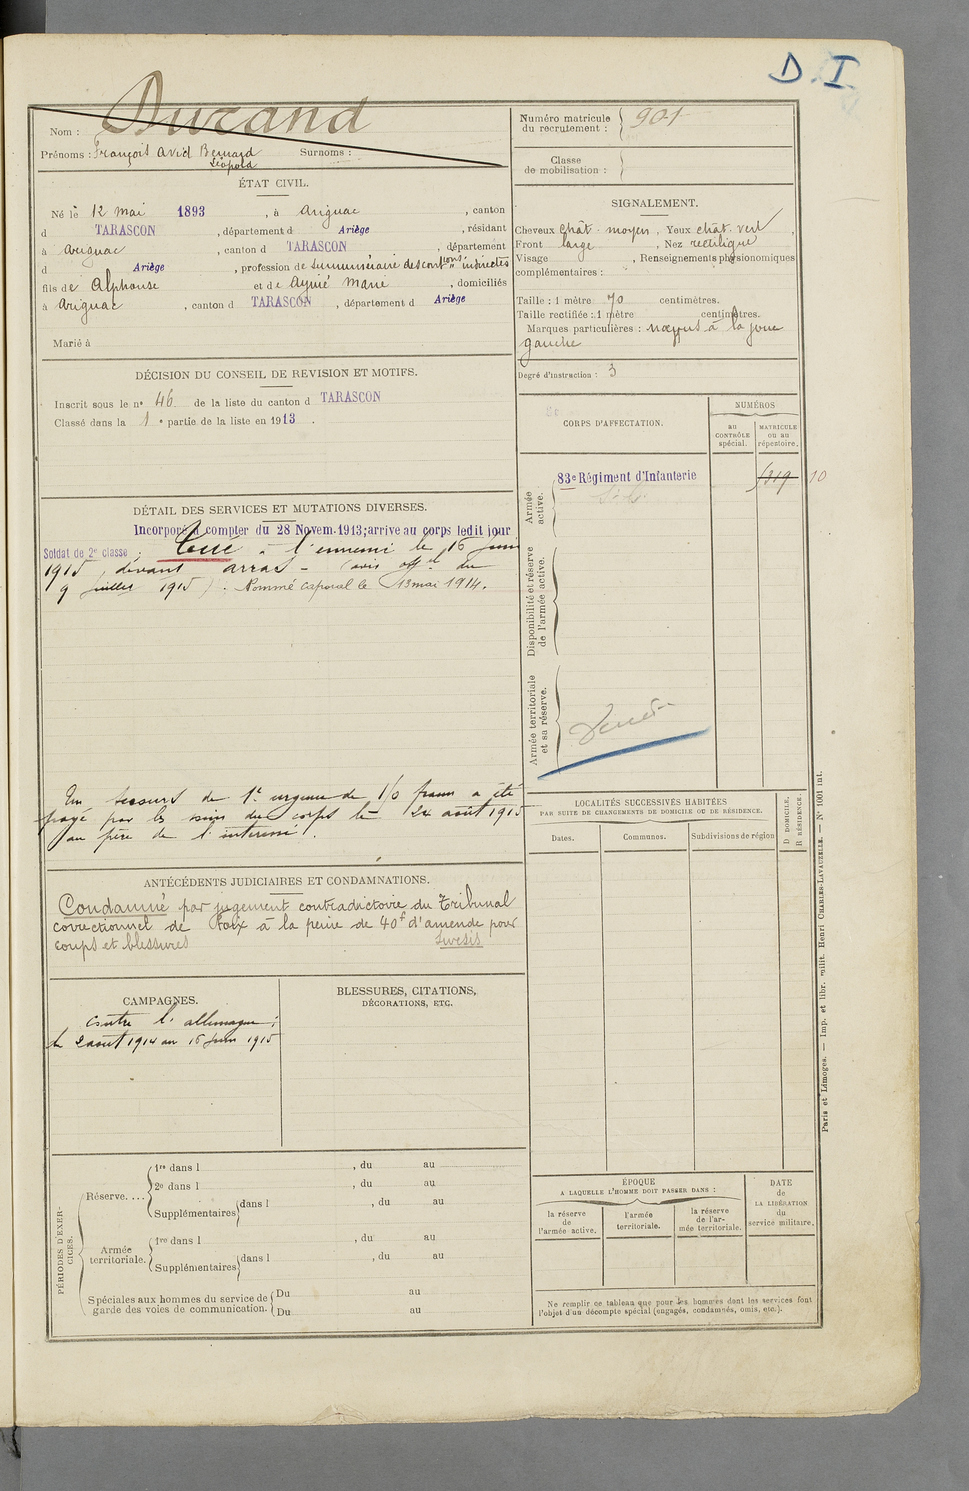 D. I.
Nom : Durand
Prénoms : François Avid Bernard Surnoms :
Léopold
ÉTAT CIVIL.
Né le 12 mai 1893, à Arignac, canton
d TARASCON, département d Ariège, résidant
à Arignac, canton d TARASCON, département
d Ariège, profession de surnuméraire des contions indirectes
fils de Alphonse et de Aynié Marie, domiciliés
à Arignac, canton d TARASCON, département d Ariège
Marié à
DÉCISION DU CONSEIL DE REVISION ET MOTIFS.
Inscrit sous le no 46 de la liste du canton d TARASCON
Classé dans la 1 e partie de la liste en 1913.
DÉTAIL DES SERVICES ET MUTATIONS DIVERSES.
Incorporé à compter du 28 Novem. 1913; arrive au corps ledit jour
Soldat de 2e classe. Tué à l'ennemi le 16 juin
1915, devant Arras - (avis offel du
9 juillet 1915). Nommé caporal le 13 mai 1914.
Un secours de 1e urgence de 150 francs a été
payé par les soins du corps le 24 août 1915
au père de l'intéressé.
ANTÉCÉDENTS JUDICIAIRES ET CONDAMNATIONS.
Condamné par jugement contradictoire du Tribunal
correctionnel de Foix à la peine de 40f d'amende pour
coups et blessures Sursis
CAMPAGNES.
Contre l'allemagne;
le 2 août 1914 au 16 juin 1915
BLESSURES, CITATIONS,
DÉCORATIONS, ETC.
PÉRIODES D'EXER-
CICES.
Réserve....
1re dans l , du au
2e dans l , du au
Supplémentaires dans l , du au
Armée
territoriale.
1re dans l , du au
Supplémentaires dans l , du au
Spéciales aux hommes du service de
garde des voies de communication.
Du au
Du au
Numéro matricule
du recrutement : 901
Classe
de mobilisation :
SIGNALEMENT.
Cheveux chât. moyen, Yeux chât. vert,
Front large, Nez rectiligne
Visage , Renseignements physionomiques
complémentaires :
Taille : 1 mètre 70 centimètres.
Taille rectifiée : 1 mètre centimètres.
Marques particulières : nævus à la joue
gauche
Degré d'instruction : 3
CORPS D'AFFECTATION.
NUMÉROS
au
CONTRÔLE
spécial.
MATRICULE
ou au
répertoire.
Armée
active.
83e Régiment d'Infanterie
10
Disponibilité et réserve
de l'armée active.
Armée territoriale
et sa réserve.
LOCALITÉS SUCCESSIVES HABITÉES
PAR SUITE DE CHANGEMENTS DE DOMICILE OU DE RÉSIDENCE.
D. DOMICILE.
R. RÉSIDENCE.
Dates.
Communes.
Subdivisions de région
ÉPOQUE
A LAQUELLE L'HOMME DOIT PASSER DANS :
la réserve
de
l'armée active.
l'armée
territoriale.
la réserve
de l'ar-
mée territoriale.
DATE
de
LA LIBÉRATION
du
service militaire.
Ne remplir ce tableau que pour les hommes dont les services font
l'objet d'un décompte spécial (engagés, condamnés, omis, etc.).
Paris et Limoges. — Imp. et libr. milit. Henri CHARLES-LAVAUZELLE. — No 1001 int.